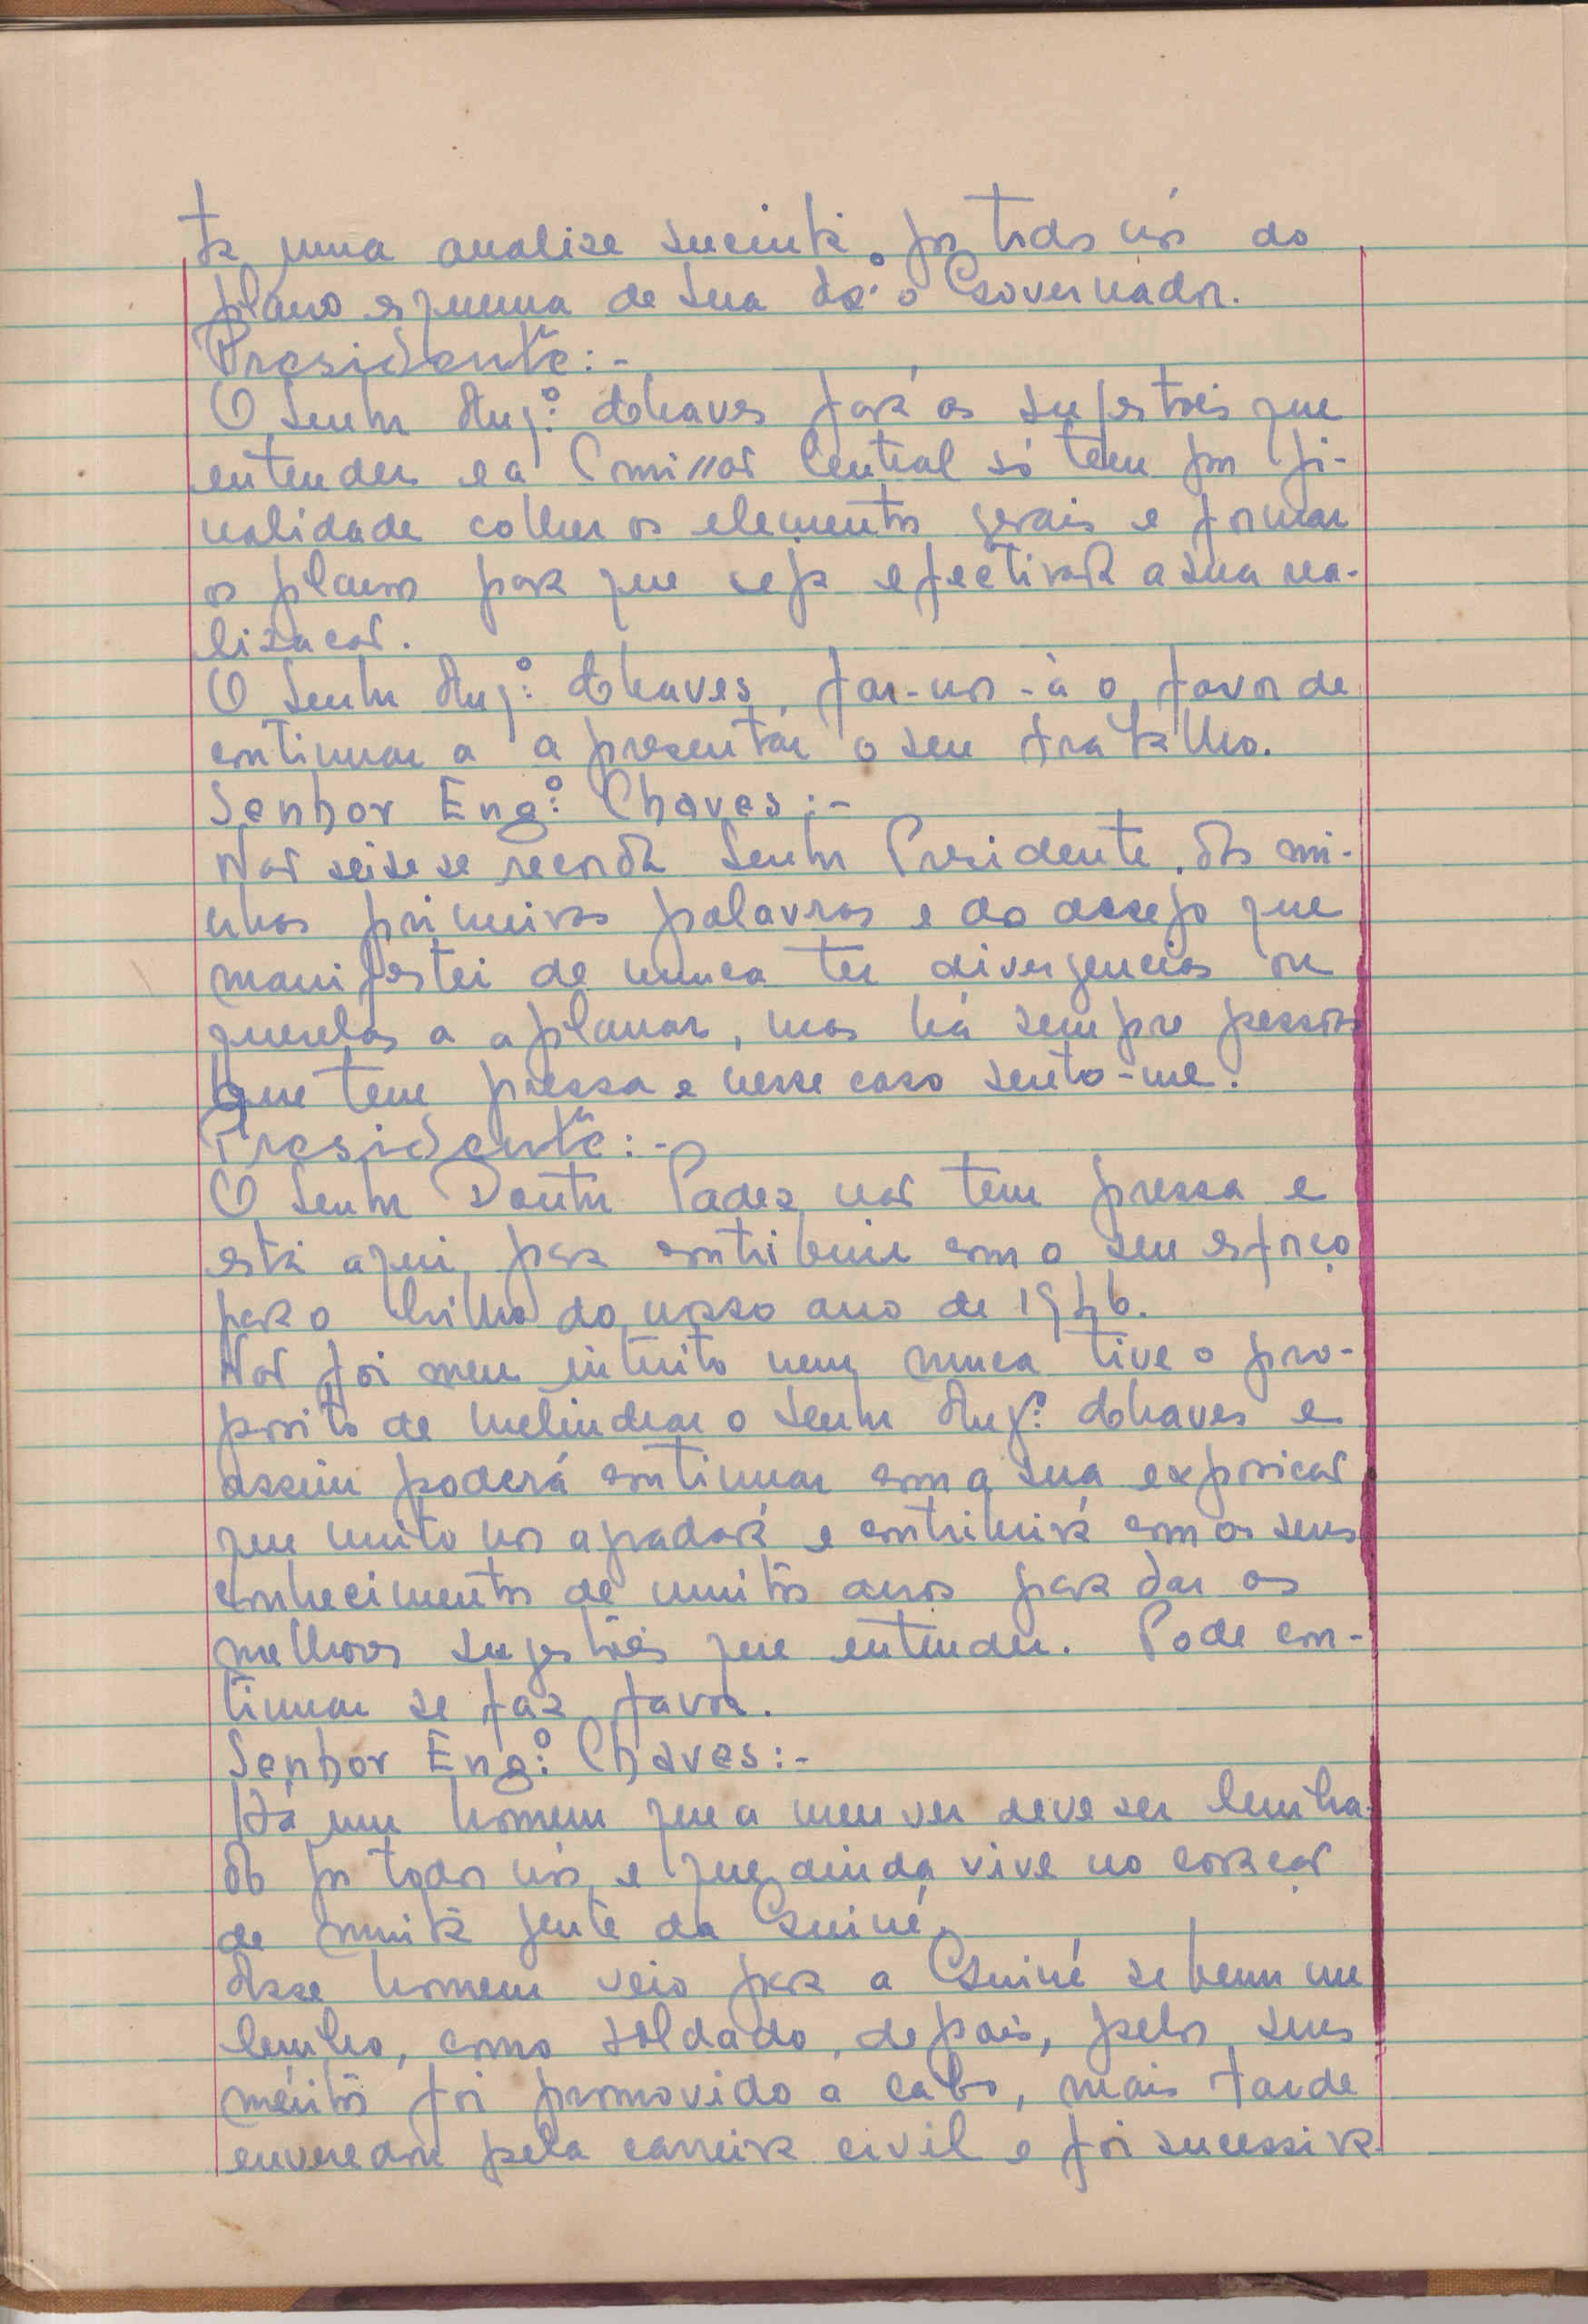 ta uma analise sucinta por todos nós do
plano esquema de Sua Ex.º o Governador.
Presidente:-
O Senhor Eng.º Chaves fará as sugestões que
entender e a Comissão Central só tem por fi-
nalidade colher os elementos gerais e formar
os planos para que seja efectivada a sua rea-
lização.
O Senhor Eng.º Chaves, far-nos-à o favor de
continuar a apresentar o seu trabalho.
Senhor Eng.º Chaves:-
Não sei se se recorda Senhor Presidente, das mi-
nhas primeiras palavras e do desejo que
manifestei de nunca ter divergencias ou
querelas a aplanar, mas há sempre pessoas
que tem pressa e nesse caso sento-me.
Presidente:-
O Senhor Doutor Pades não tem pressa e
está aqui para contribuir com o seu esforço
para o brilho do nosso ano de 1946.
Não foi meu intuito nem nunca tive o pro-
posito de melindrar o Senhor Eng.º Chaves e
assim poderá continuar com a sua exposição
que muito nos agradará e contribuirá com os seus
conhecimentos de muitos anos para dar as
melhores sugestões que entender. Pode con-
tinuar se faz favor.
Senhor Eng.º Chaves:-
Há um homem que a meu ver deve ser lembra-
do por todos nós, e que ainda vive no coração
de muita gente da Guiné.
Esse homem veio para a Guiné se bem me
lembro, como soldado, depois, pelos seus
méritos foi promovido a cabo, mais tarde
enveredou pela carreira civil e foi sucessiva-